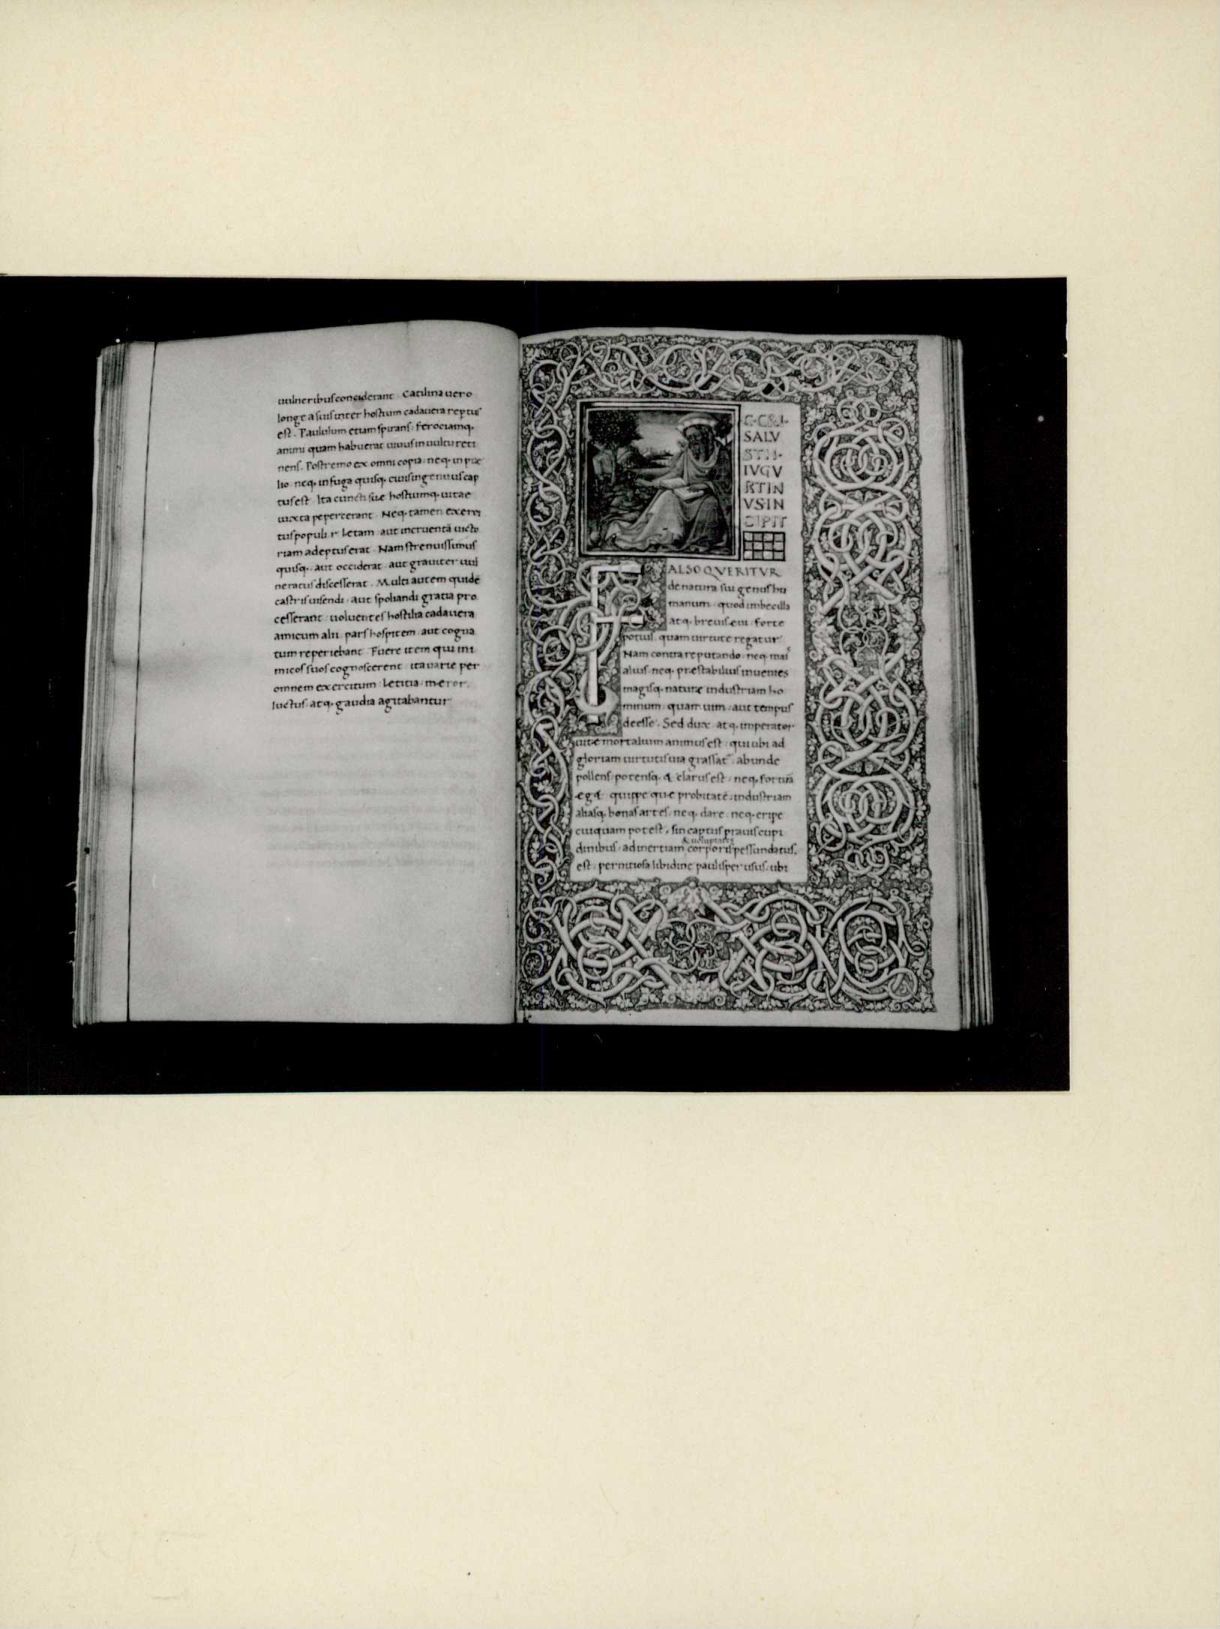 uulneribus conciderant · Catilina uero
longe a suis inter hostium cadauera reptus
est · Paululum etiam spirans · ferociamq.
animi quam habuerat uiuus in uultu reti
nens · Postremo ex omni copia · neq. in prœ
lio · neq. in fuga quisq. ciuis ingenuus cap
tus est · Ita cuncti suę hostiumq. uitae
iuxta pepercerant · Neq. tamen exerci
tus populi · r · lętam · aut incruentā uicto
riam adeptus erat · Nam strenuissimus
quisq. aut occiderat · aut grauiter uul
neratus discesserat · Multi autem qui de
castris uisendi · aut spoliandi gratia pro
cesserant · uoluentes hostilia cadauera
amicum alii · pars hospitem · aut cogna
tum reperiebant · Fuere item qui ini
micos suos cognoscerent · ita uarie per
omnem exercitum · lętitia · męror ·
luctus · atq. gaudia agitabantur
SALV
STII ·
IVGV
RTIN
VS IN
CIPIT
FALSO QVERITVR
de natura sui genus hu
manum · quod imbecilla
atq. breuis eui · forte
potius · quam uirtute regatur
Nam contra reputando · neq. maiꝰ
aliud · neq. pręstabilius inuenies
magisq. naturę industriam ho
minum · quam uim · aut tempus
deesse · Sed dux · atq. imperator
uitę mortalium animus est · qui ubi ad
gloriam uirtutis uia grassat᷑ · abunde
pollens · potensq. & clarus est · neq. fortūa
eget · quippe quę probitatē · industriam
aliasq. bonas artes · neq. dare · neq. eripe
cuiquam potest · sin captus prauis cupi
dinibus · ad inertiam & uoluptates corporis pessundatus
est · pernitiosa libidine paulisper usus · ubi